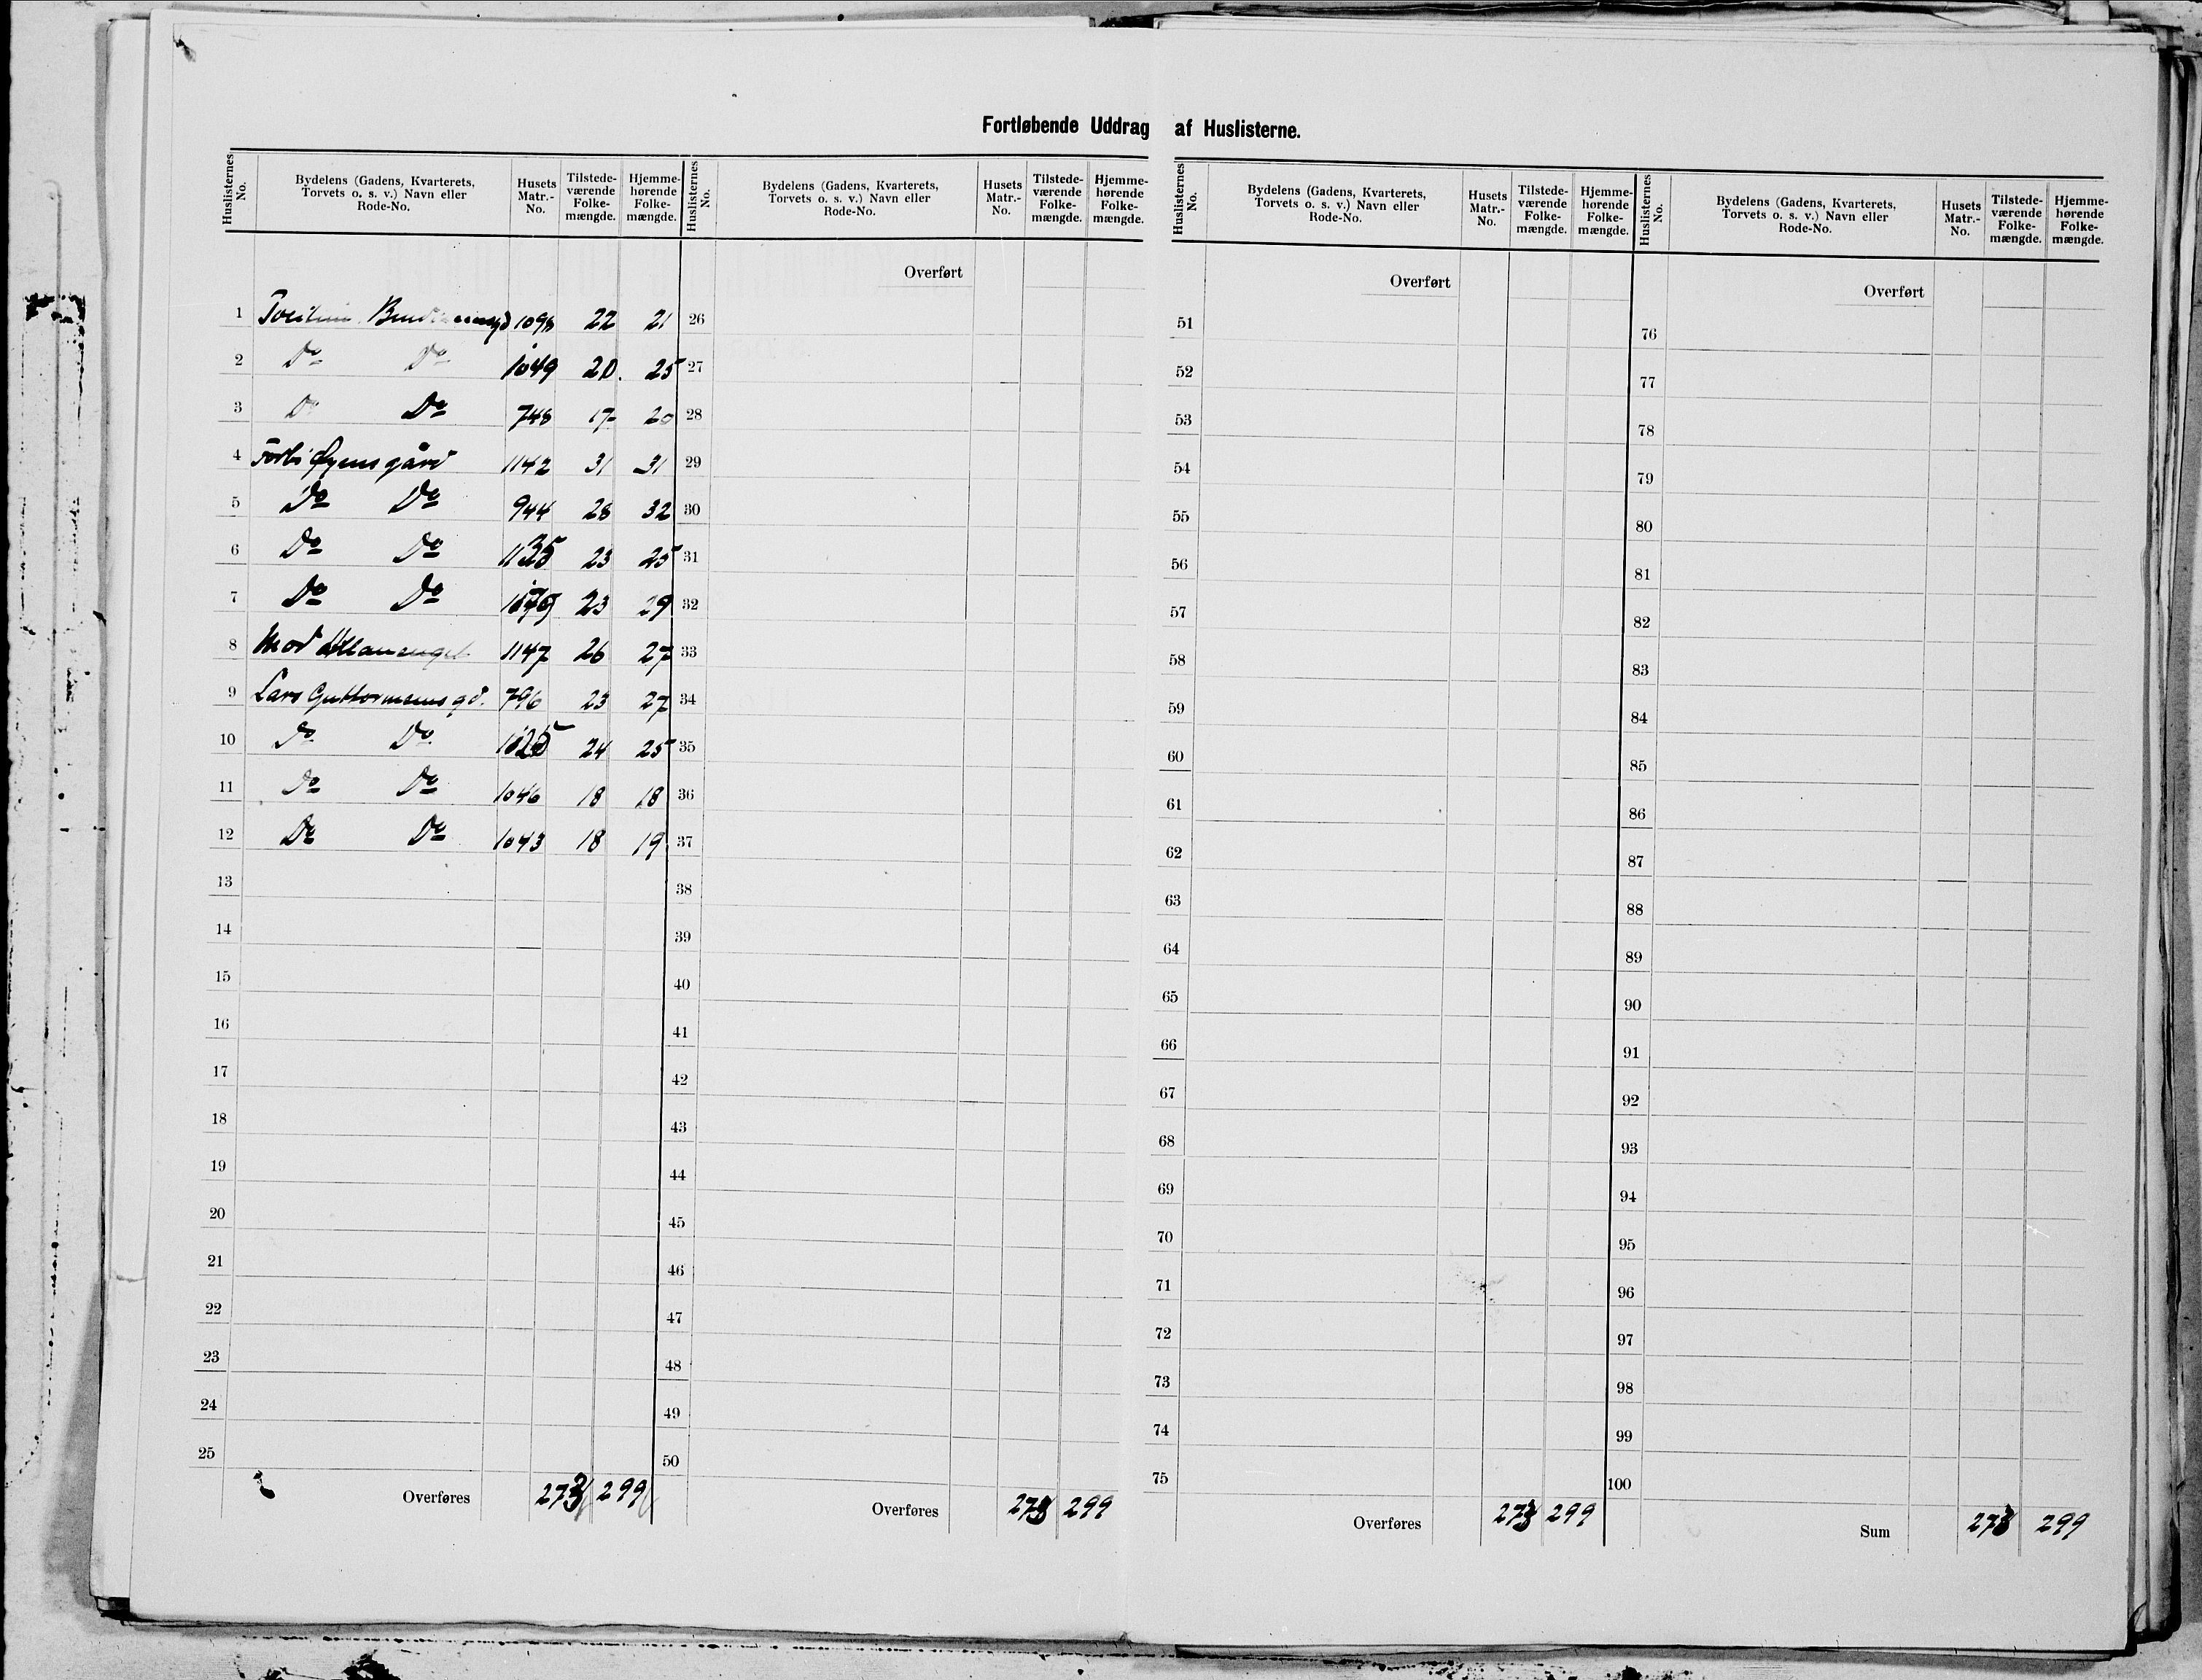 Fortløbende Uddrag af Huslisterne.
Huslisternes No. Bydelens (Gadens, Kvarterets, Torvets o. s. v.) Navn eller Rode-No. Husets Matr.-No. Tilstede-værende Folke-mængde. Hjemme-hørende Folke-mængde.
Huslisternes No. Bydelens (Gadens, Kvarterets, Torvets o. s. v.) Navn eller Rode-No. Husets Matr.-No. Tilstede-værende Folke-mængde. Hjemme-hørende Folke-mængde.
Huslisternes No. Bydelens (Gadens, Kvarterets, Torvets o. s. v.) Navn eller Rode-No. Husets Matr.-No. Tilstede-værende Folke-mængde. Hjemme-hørende Folke-mængde.
Huslisternes No. Bydelens (Gadens, Kvarterets, Torvets o. s. v.) Navn eller Rode-No. Husets Matr.-No. Tilstede-værende Folke-mængde. Hjemme-hørende Folke-mængde.
1 1098 22 21
2 Do Do 1049 20. 25
3 Do Do 748 17 20
4 1142 31 31
5 Do Do 944 28 32
6 Do Do 1135 23 25
7 Do Do 23 29
8 Mod 1147 26 27
9 Lars Guttormsens gd. 796 23 27
10 Do Do 1025 24 25
11 Do Do 1046 18 18
12 Do Do 1043 18 19
13
14
15
16
17
18
19
20
21
22
23
24
25
Overføres 273 299
Overført
26
27
28
29
30
31
32
33
34
35
36
37
38
39
40
41
42
43
44
45
46
47
48
49
50
Overføres 273 299
Overført
51
52
53
54
55
56
57
58
59
60
61
62
63
64
65
66
67
68
69
70
71
72
73
74
75
Overføres 273 299
Overført
76
77
78
79
80
81
82
83
84
85
86
87
88
89
90
91
92
93
94
95
96
97
98
99
100
Sum 273 299